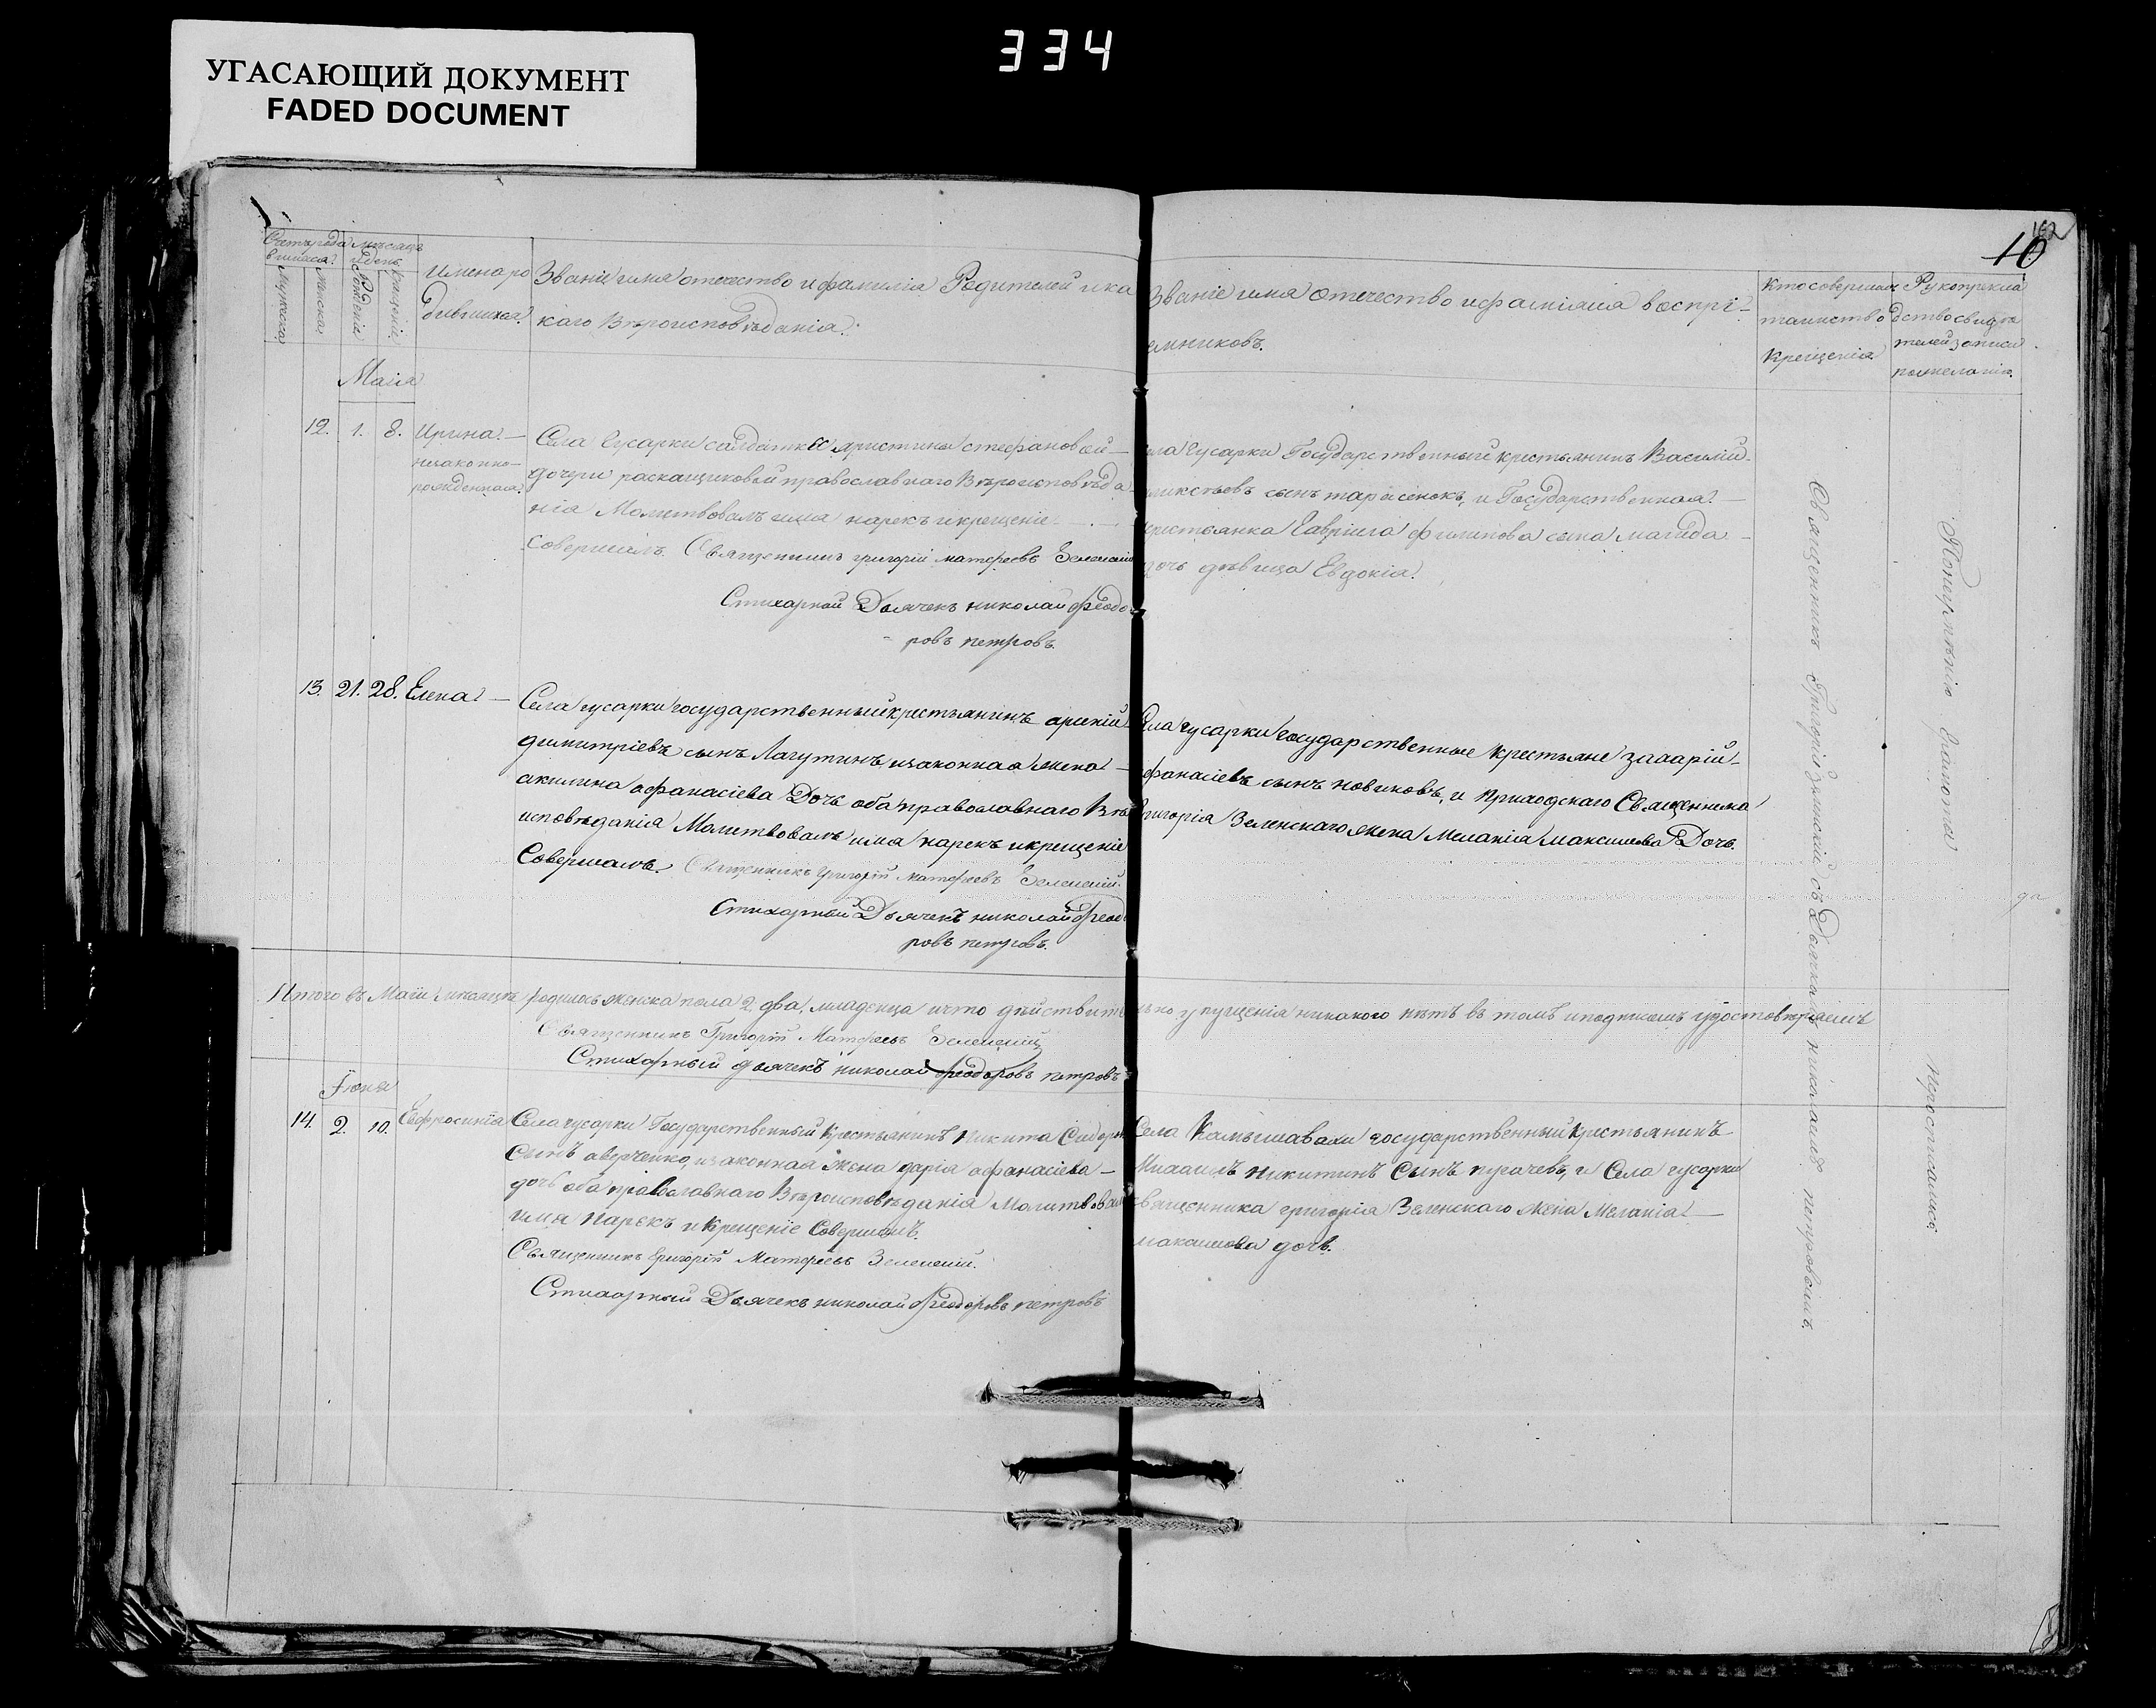 334
УГАСАЮЩИЙ ДОКУМЕНТ
FADED DOCUMENT
10
Мѣсяцъ
и день
Мужеска
Женска
Рожденія
Крещенія
Имена ро
дившихся
Званіе имя отечество и фамилія Родителей и ка
каго Вѣроисповѣданія.
Званіе имя отечество и фамилия воспрі-
емниковъ.
Кто совершал
таинство
Крещенія
Рукоприкла
дство свидѣ
телей записи
по желанію.
Маія
12. 1. 8. Ирина
незаконно-
рожденная
Села Гусарки салдатки христины стефановой
дочери раскащиковой православнаго Вѣроисповѣда
нія Молитвовалъ имя нарекъ и крещеніе
Совершалъ. Священникъ григорій матфеевъ Зеленскій
Стихарной Дьячекъ николай Феодо
ровъ петровъ.
ела Гусарки Государственный крестьянинъ Василий
сынъ тарасенокъ, и Государственная
крестьянка Гавріила филипова сына
дочь дѣвица Евдокія.
13. 21. 28. Елена
Села гусарки государственный крестьянинъ арсеній
димитріевъ сынъ Лагутинъ, изаконная жена
акилина афанасіева Дочь оба православнаго Вѣ
исповѣданія Молитвовалъ имя нарекъ и крещеніе
Совершалъ. Священникъ григорій матфеевъ Зеленскій.
Стихарный Дьячекъ николай Феод
ровъ петровъ.
Села гусарки государственные крестьяне захарій
афанасіевъ сынъ новиковъ, и приходскаго Священника
григорія Зеленскаго жена Меланія максимова Дочь.
Итого въ Маіи мѣсяцѣ родилось женска пола 2, два, младенца и что дѣйствительно упущенія никакого нѣтъ въ томъ и подписомъ удостовѣряемъ
Священникъ Григорій Матфеевъ Зеленский
Стихарный дьячекъ николай феодоровъ петровъ
Іюня
14. 2. 10. Евфросинія
Села гусарки Государственный крестьянинъ Никита Сидоров
Сынъ аверченко, изаконная жена дарія афанасіева
дочь оба православнаго Вѣроисповѣданія Молитвовалъ
имя нарекъ и крещеніе Совершалъ.
Священникъ григорій Матфеевъ Зеленский.
Стихарный Дьячекъ николай Феодоровъ петровъ
Села Камышавахи государственный крестьянинъ
Михаилъ никитинъ сынъ пугачевъ, и Села гусарки
священника григорія Зеленскаго жена Меланія
максимова дочь.
Священникъ Григорій Зеленский съ Дьячкомъ николаемъ петровымъ.
По неумѣнію грамоты
не росписались